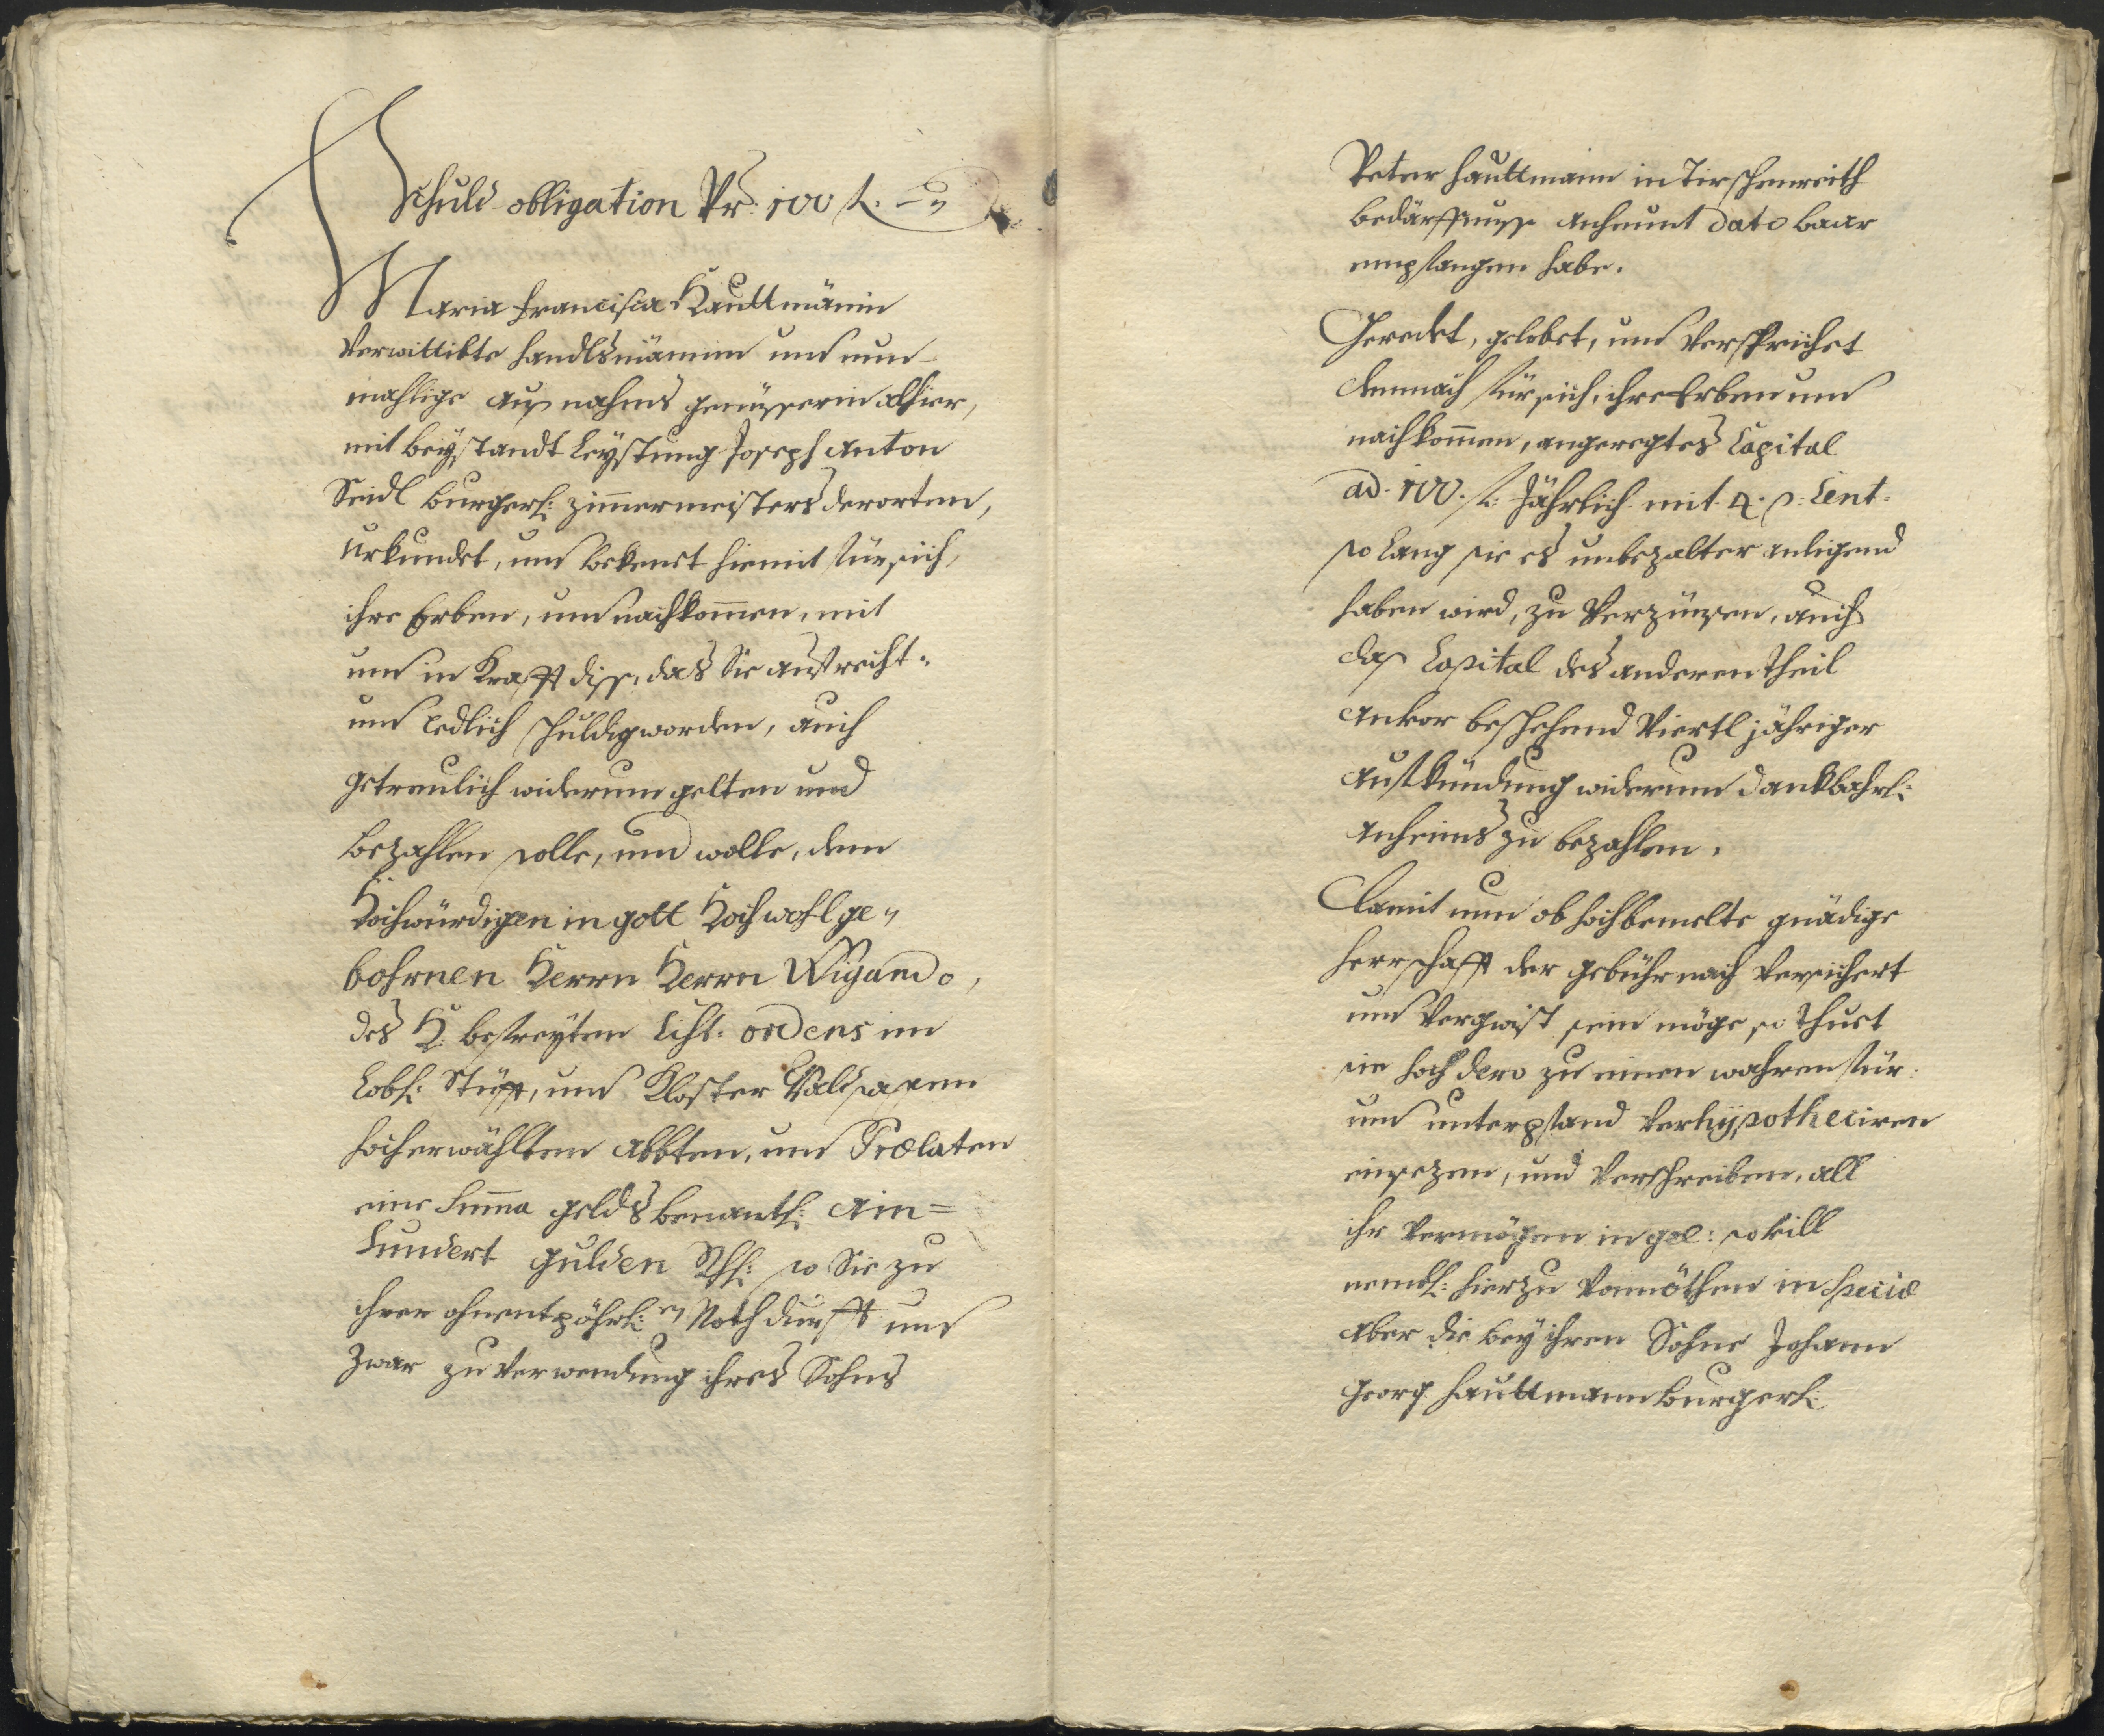 Schuld obligation Pr: 100 fl. –„
Maria Francisca Hauttmänin
Verwittibte Handlsmännin und nun-
mahlige auß nahms genüsserin alhier,
mit beystandt Leystung Joseph Anton
Seidl burgerl: Zimmermeisters derorten,
Urkundet, und bekenet hiemit für sich,
ihre Erben, und nachkom̄en, mit
und in Krafft diß, das Sie aufrecht-
und redlich schuldig worden, auch
getreulich widerumb gelten und
bezahlen solle, und wolle, dem
Hochwürdigen in gott Hochwohlge„
bohrnen Herrn Herrn Wigando,
des H: befreyten Cist: ordens im
Löbl: Stüfft, und Kloster Waldsassen
hocherwählten Abbten, und Prælaten
eine Sum̄a gelds benantl: Ain=
hundert gulden Rhl: so Sie zu
ihrer ohnentpöhrl:en Nothdurfft und
zwar zu Verwendung ihres Sohns
Peter Hauttmann in Tirschenreith
bedärffnuss anheunt dato baar
empfangen habe.
Geredet, gelobet, und Versprichet
demnach für sich, ihre Erben und
nachkom̄en, angeregtes Capital
ad. 100. fl: Jährlich mit 4. p: Cent:
so lang sie es unbezalter anligend
haben wird, zu Verzünsen, auch
das Capital des anderen theil
ankor beschehend Viertl jähriger
aufkündung widerumb dankbahrl:
anheims zu bezahlen.
Damit nun ob hochbemelte gnädige
Herrschafft der gebühr nach Versichert
und Vergwist sein möge so thuet
sie hoch dero zu einen wahren für-
und unterpfand Verhypotheciren
einsezen, und Verschreiben, all
ihr Vermögen in gñe: so vill
nembl: hierzu Vonnöthen in Specie
aber die bey ihren Sohne Johann
Georg Hauttmann burgerl: